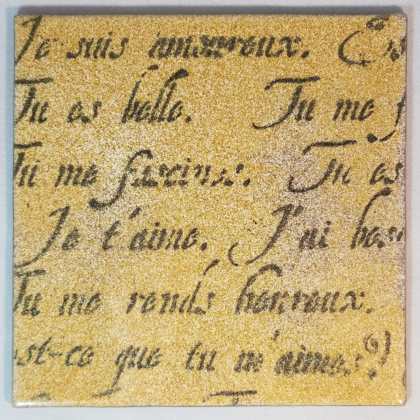 Je suis amoureux. Es
Tu es belle. Tu me f
Tu me fascines. Tu es
Je t'aime. J'ai beso
Tu me rends heureux.
st-ce que tu m'aimes?